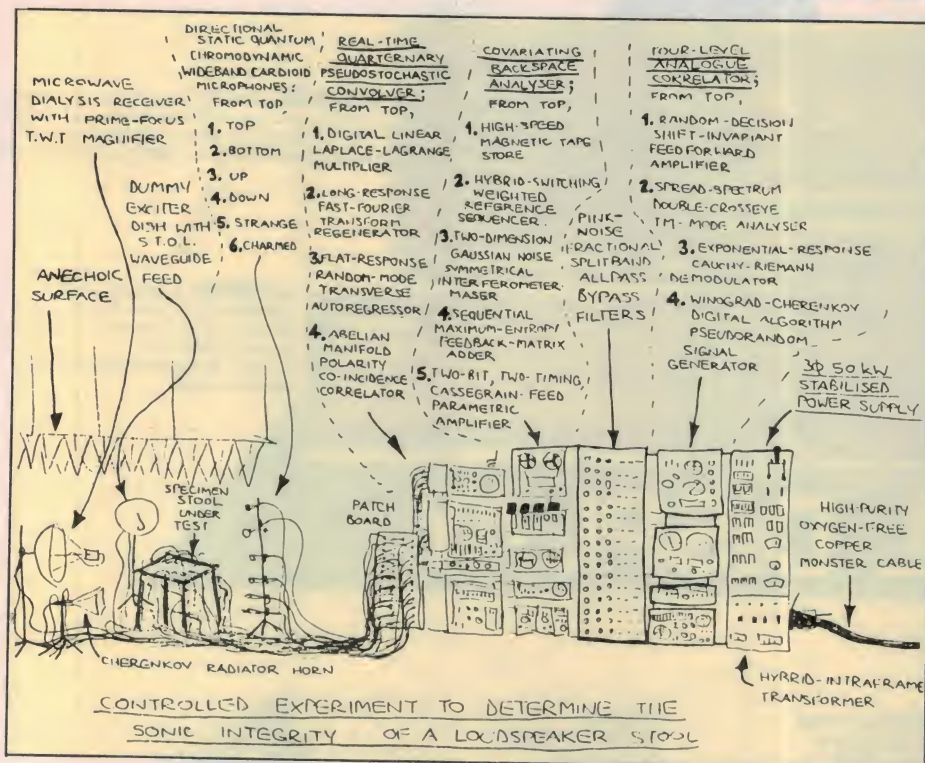 MICROWAVE
DIALYSIS RECEIVER
WITH PRIME-FOCUS
T.W.T MAGNIFIER
DIRECTIONAL
STATIC QUANTUM
CHROMODYNAMIC
WIDEBAND CARDIOID
MICROPHONES:
FROM TOP
1. TOP
2. BOTTOM
3. UP
4. DOWN
5. STRANGE
6. CHARMED
DUMMY
EXCITER
DISH WITH
S.T.O.L.
WAVEGUIDE
FEED
ANECHOIC
SURFACE
REAL-TIME
QUARTERNARY
PSEUDOSTOCHASTIC
CONVOLVER;
FROM TOP,
1. DIGITAL LINEAR
LAPLACE-LAGRANGE
MULTIPLIER
2. LONG-RESPONSE
FAST-FOURIER
TRANSFORM
REGENERATOR
3. FLAT-RESPONSE
RANDOM-MODE
TRANSVERSE
AUTOREGRESSOR
4. ABELIAN
MANIFOLD
POLARITY
CO-INCIDENCE
CORRELATOR
COVARIATING
BACKSPACE
ANALYSER;
FROM TOP,
1. HIGH-SPEED
MAGNETIC TAPE
STORE
2. HYBRID-SWITCHING
WEIGHTED
REFERENCE
SEQUENCER
3. TWO-DIMENSION
GAUSSIAN NOISE
SYMMETRICAL
INTERFEROMETER
MASER
4. SEQUENTIAL
MAXIMUM-ENTROPY
FEEDBACK-MATRIX
ADDER
5. TWO-BIT, TWO-TIMING,
CASSEGRAIN-FEED
PARAMETRIC
AMPLIFIER
PINK-
NOISE
FRACTIONAL
SPLITBAND
ALLPASS
BYPASS
FILTERS
FOUR-LEVEL
ANALOGUE
CORRELATOR;
FROM TOP,
1. RANDOM-DECISION
SHIFT-INVARIANT
FEEDFORWARD
AMPLIFIER
2. SPREAD-SPECTRUM
DOUBLE-CROSSEYE
TM-MODE ANALYSER
3. EXPONENTIAL-RESPONSE
CAUCHY-RIEMANN
DEMODULATOR
4. WINOGRAD-CHERENKOV
DIGITAL ALGORITHM
PSEUDORANDOM
SIGNAL
GENERATOR
3φ 50 kW
STABILISED
POWER SUPPLY
SPECIMEN
STOOL
UNDER
TEST
PATCH
BOARD
HIGH-PURITY
OXYGEN-FREE
COPPER
MONSTER CABLE
CHERENKOV RADIATOR HORN
HYBRID-INTRAFRAME
TRANSFORMER
CONTROLLED EXPERIMENT TO DETERMINE THE
SONIC INTEGRITY OF A LOUDSPEAKER STOOL